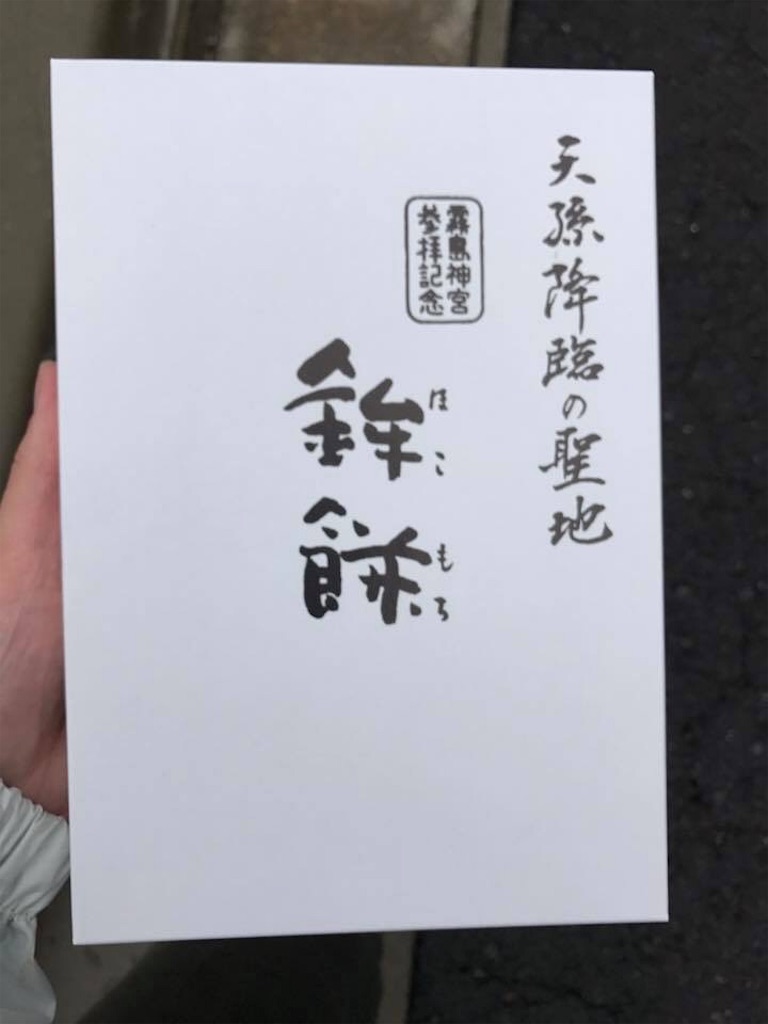 天孫降臨の聖地
霧島神宮
参拝記念
ほこ
もち
鉾
餅